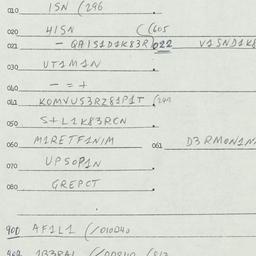 010 ISN (296
020 4ISN ((605
021 - QAISID1K83R 022 VISND1K8
030 UT1M1N
040 - = +
041 KOMVUS3RZ81P1T (
050 S+L1K83RCN
060 M1RETF1NIM 061 D3RMON1N
070 UPSOP1N
080 GREPCT
900 AF1L1 (/010040